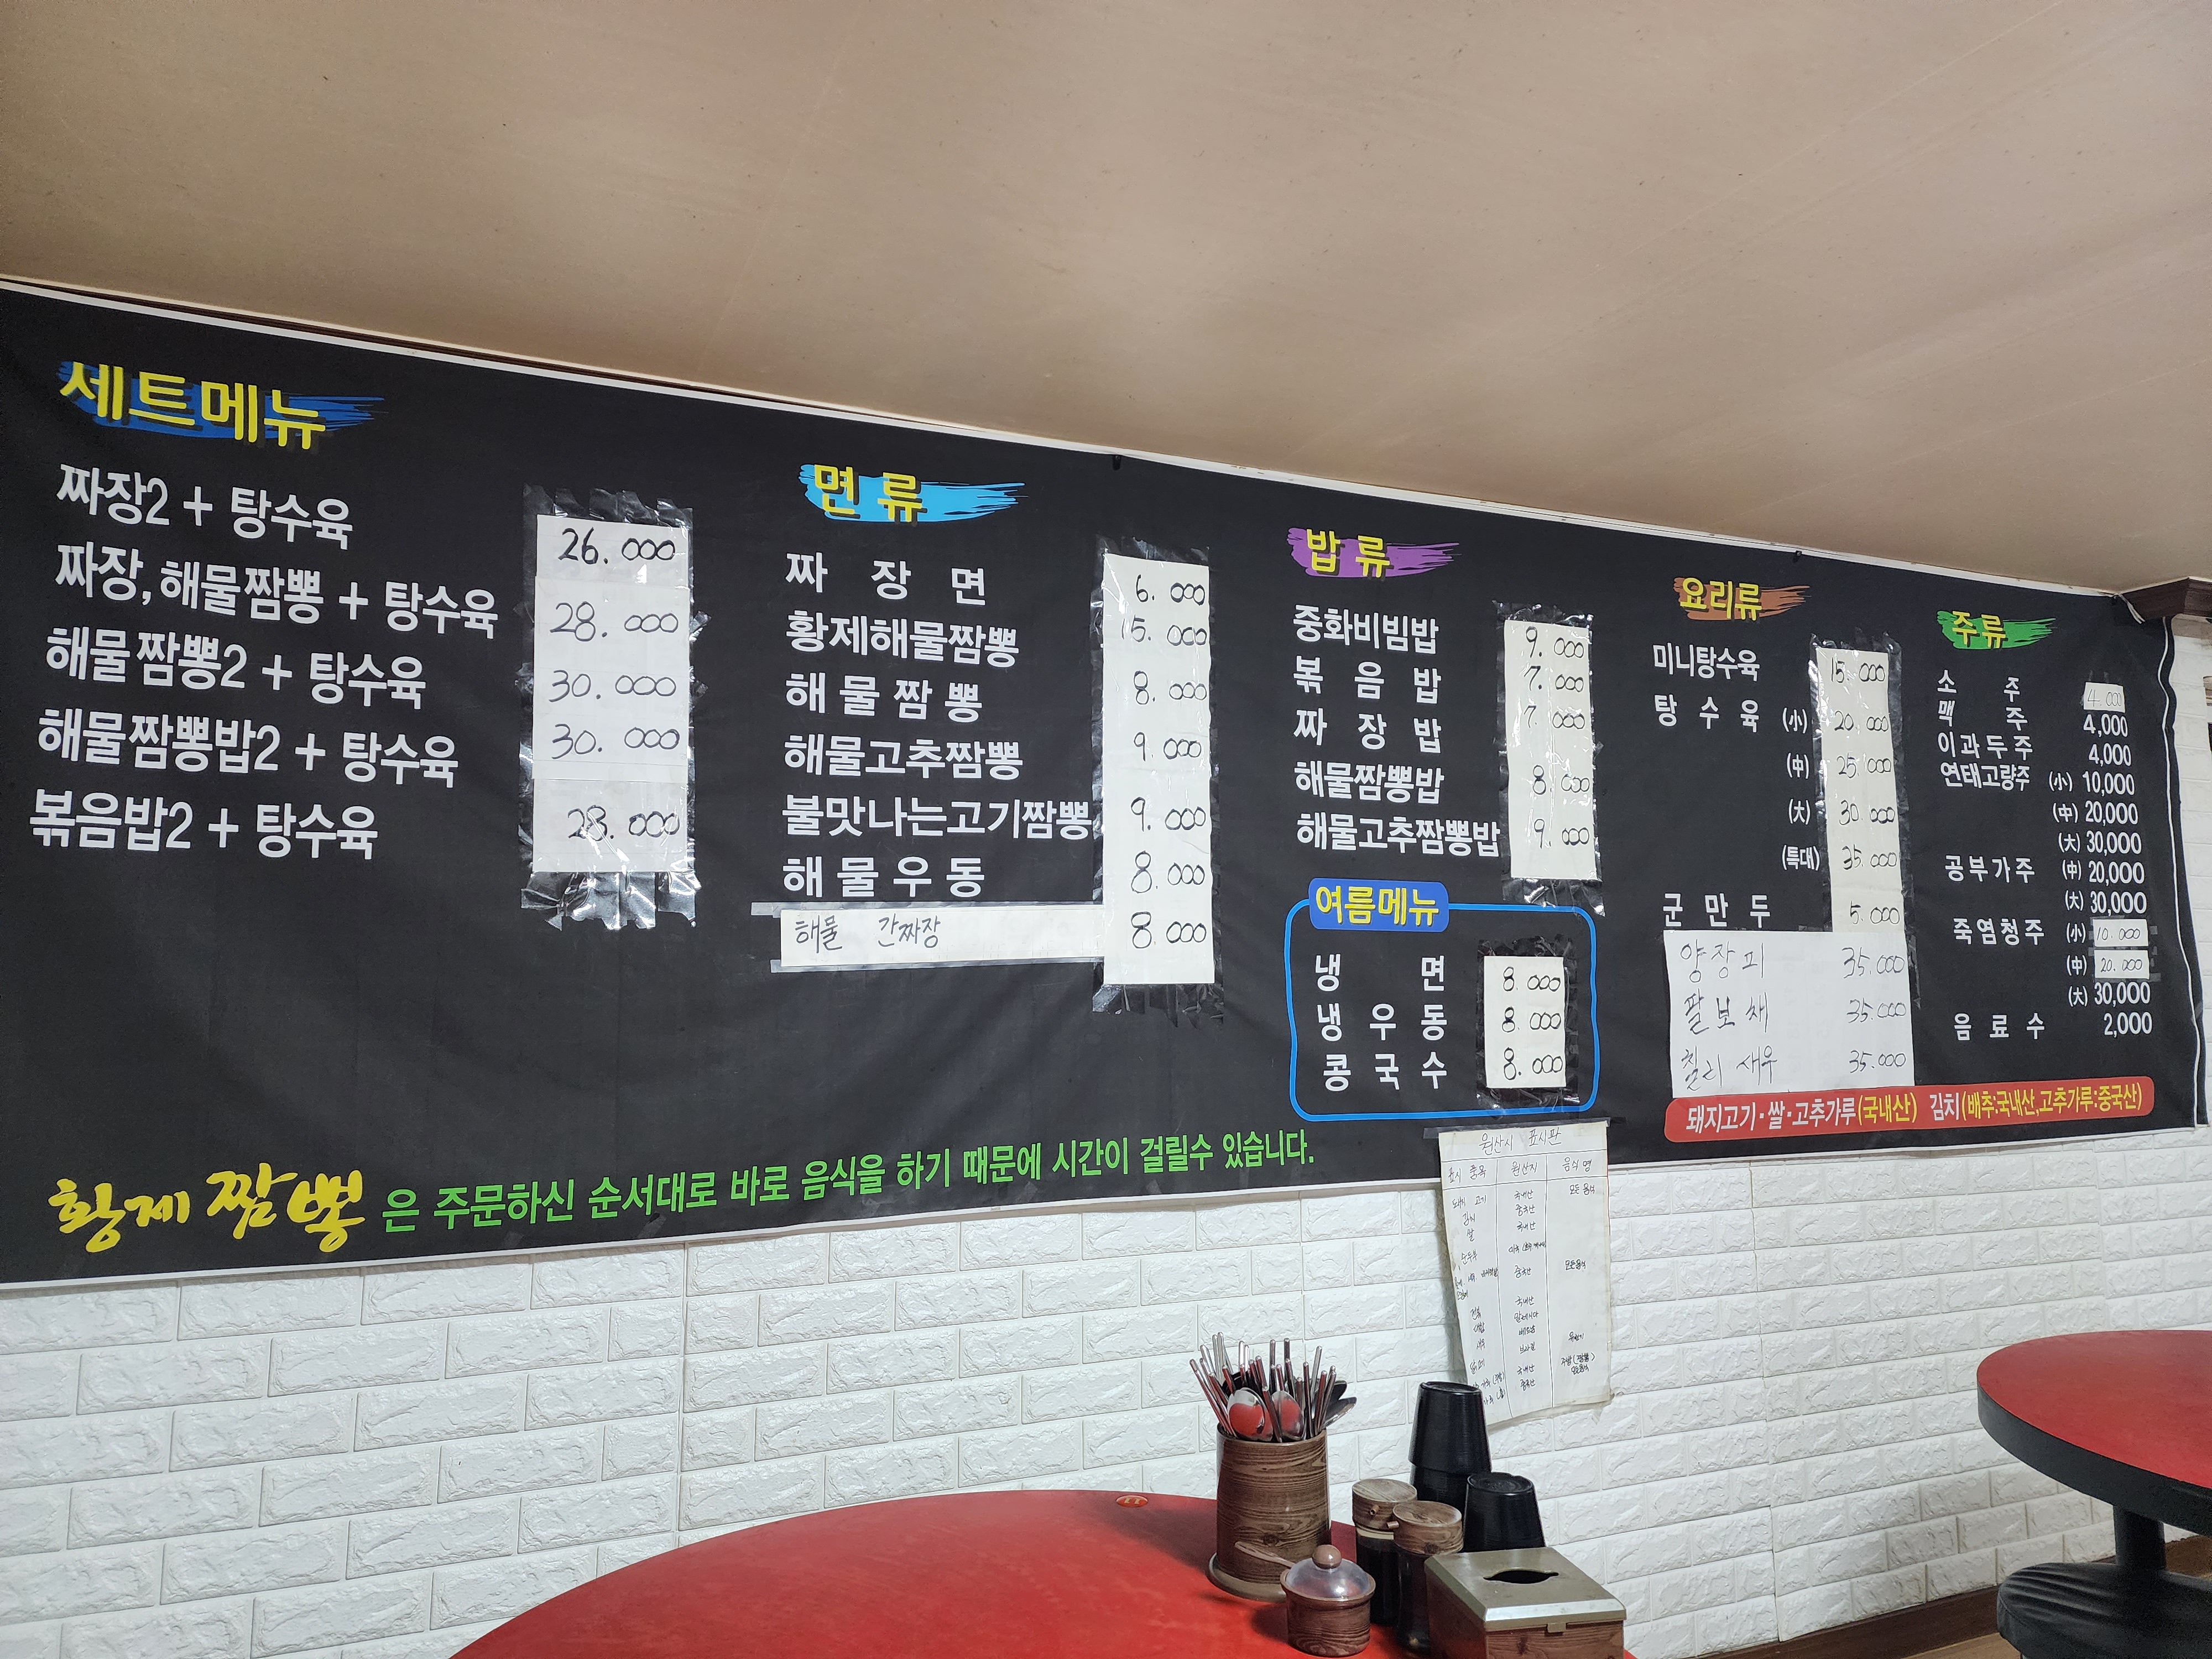 세트메뉴
짜장2 + 탕수육 26.000
짜장,해물짬뽕 + 탕수육 28.000
해물짬뽕2 + 탕수육 30.000
해물짬뽕밥2 + 탕수육 30.000
볶음밥2 + 탕수육 28.000
면류
짜장면 6.000
황제해물짬뽕 15.000
해물짬뽕 8.000
해물고추짬뽕 9.000
불맛나는고기짬뽕 9.000
해물우동 8.000
해물 간짜장 8.000
밥류
중화비빔밥 9.000
볶음밥 7.000
짜장밥 7.000
해물짬뽕밥 8.000
해물고추짬뽕밥 9.000
여름메뉴
냉면 8.000
냉우동 8.000
콩국수 8.000
요리류
미니탕수육 15.000
탕수육 (小) 20.000
(中) 25.000
(大) 30.000
(특대) 35.000
군만두 5.000
양장피 35.000
팔보채 35.000
칠리새우 35.000
주류
소주 4.000
맥주 4,000
이과두주 4,000
연태고량주 (小) 10,000
(中) 20,000
(大) 30,000
공부가주 (中) 20,000
(大) 30,000
죽염청주 (小) 10.000
(中) 20.000
(大) 30,000
음료수 2,000
돼지고기·쌀·고추가루(국내산) 김치(배추:국내산,고추가루:중국산)
황제짬뽕은 주문하신 순서대로 바로 음식을 하기 때문에 시간이 걸릴수 있습니다.
원산지 표시판
표시 품목 원산지 음식명
돼지 고기 국내산 모든 음식
김치 중국산
쌀 국내산
중국산 모든음식
국내산
국내산
중국산